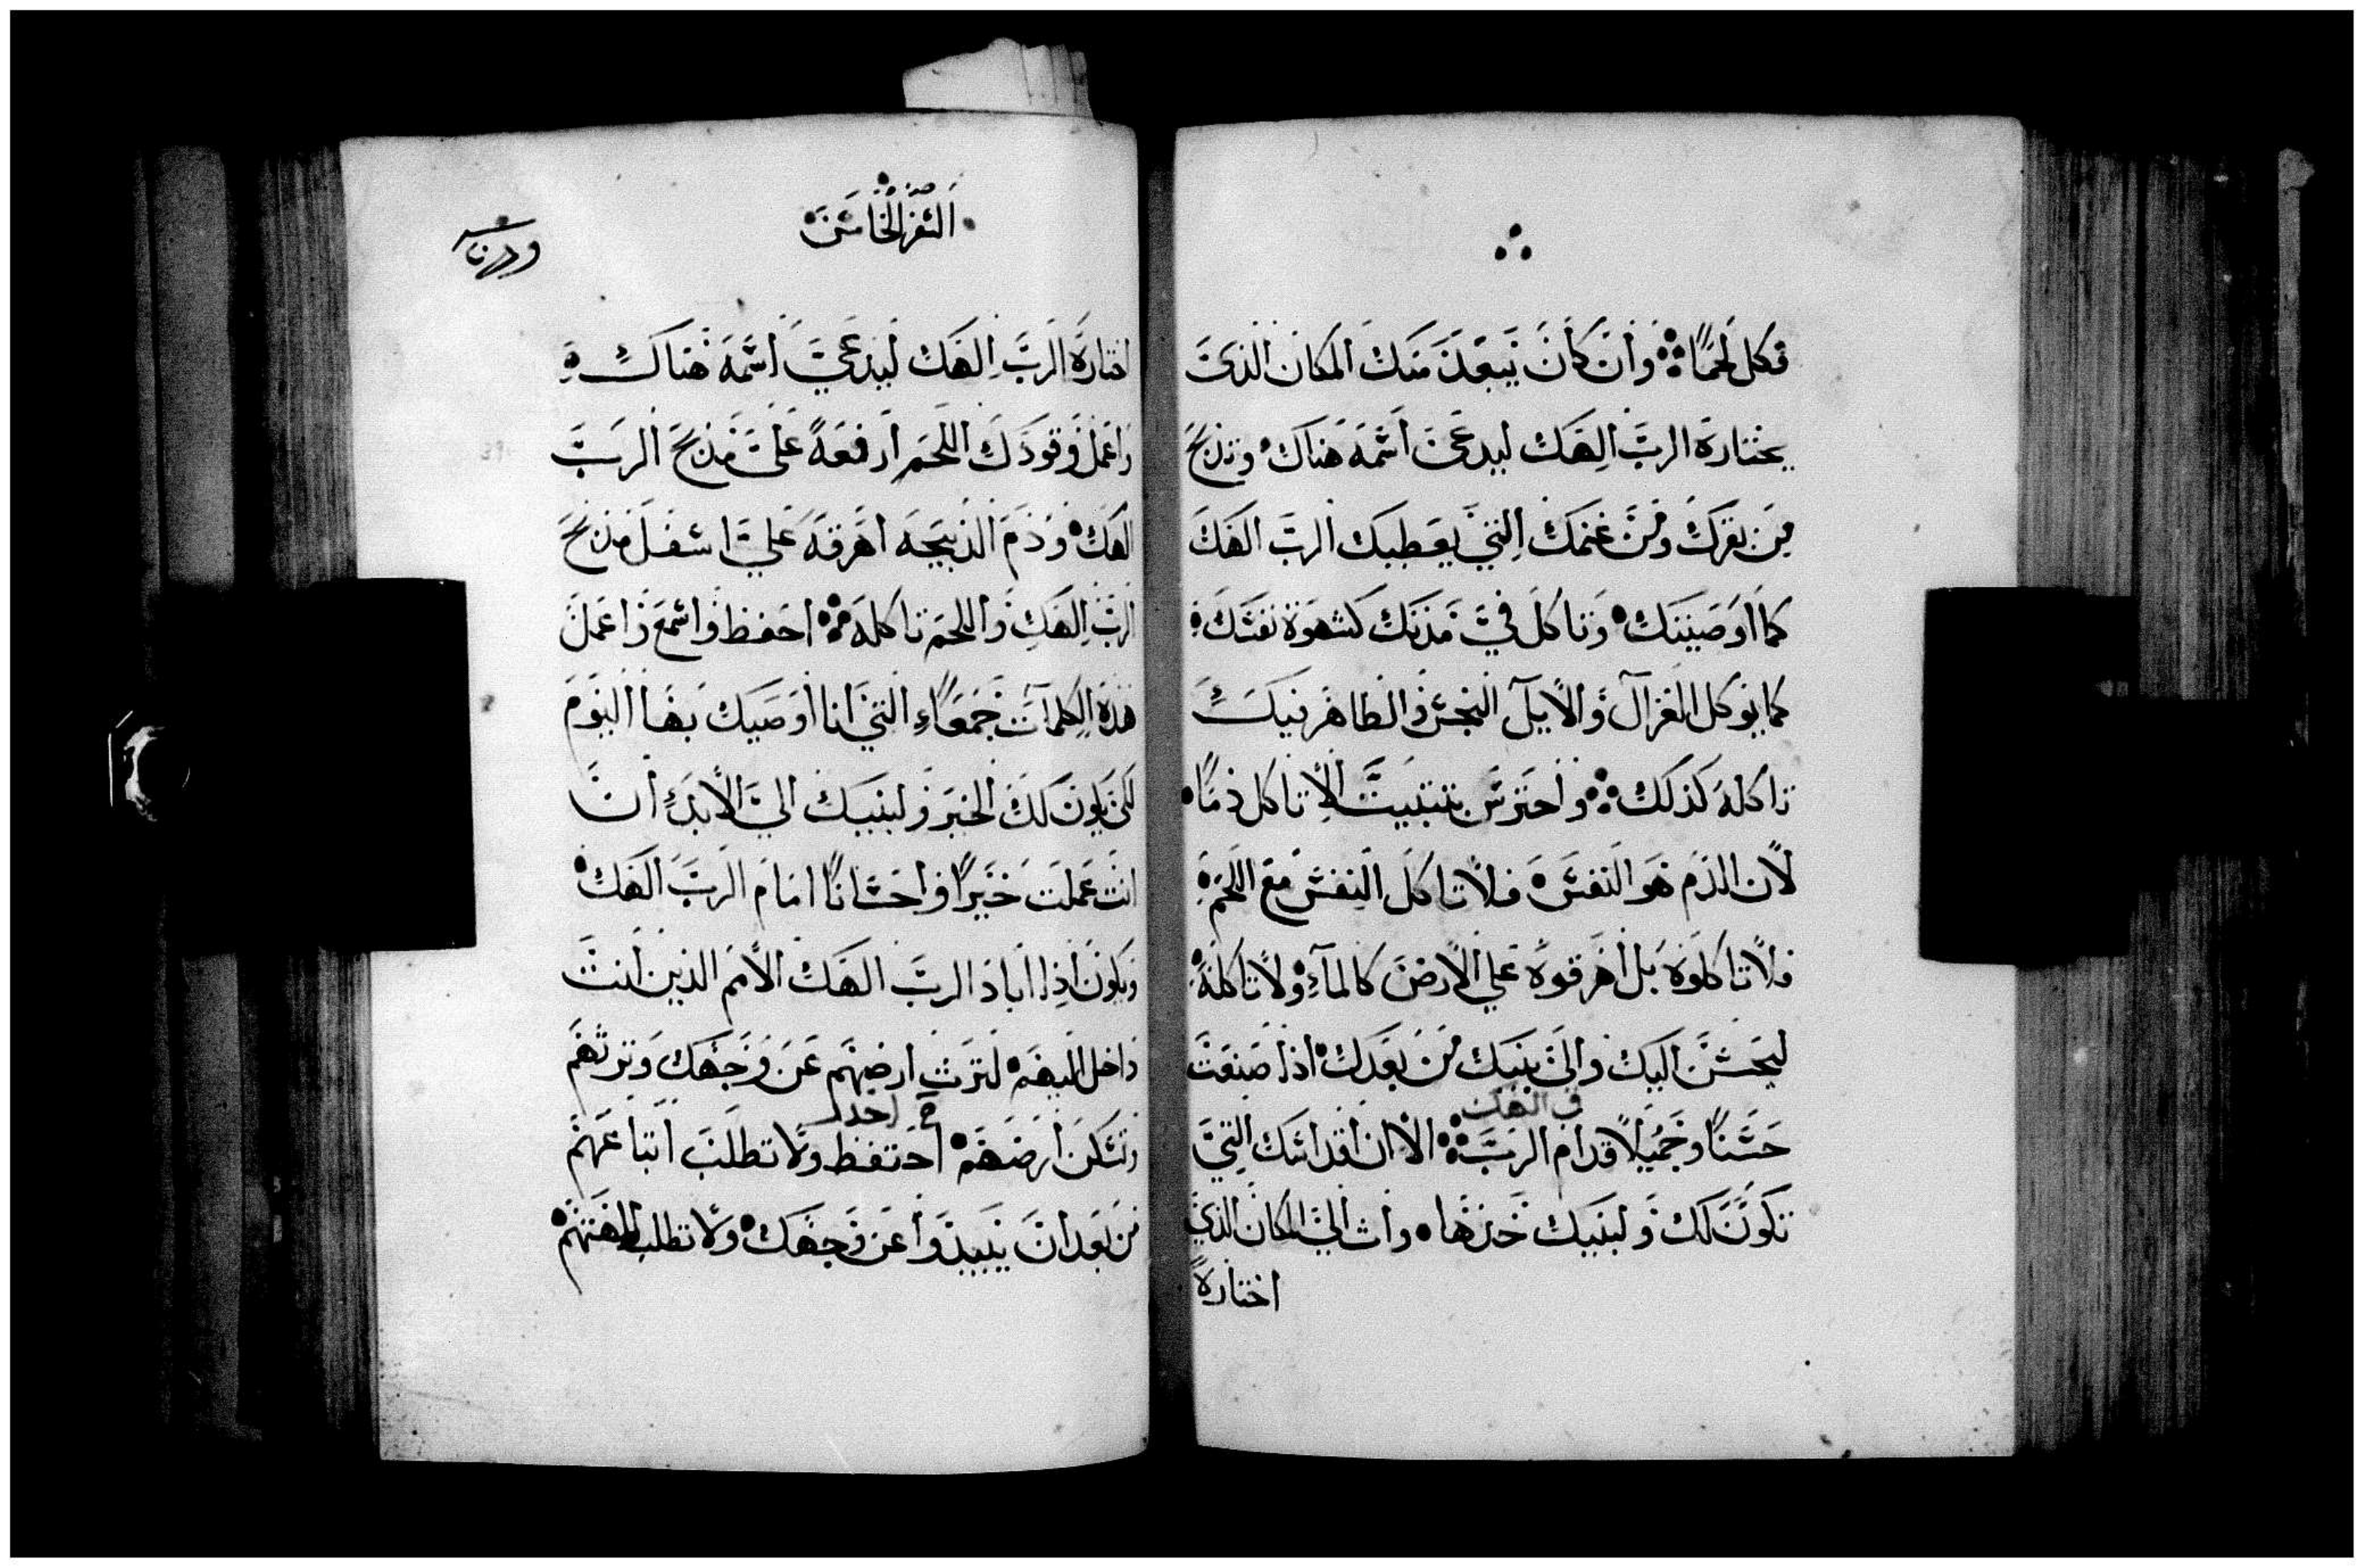 فكل لحمًا وان كان يبعد منك المكان الذي
يختاره الرب الهك ليدعى اسمه هناك وتذبح
من بقرك ومن غنمك التي يعطيك الرب الهك
كما اوصيتك وتاكل في مدنك كشهوة نفسك
كما يوكل الغزال والايل النجس والطاهر فيك
تاكله كذلك واحترس بتثبيت الا تاكل دمًا
لان الدم هو النفس فلا تاكل النفس مع اللحم
فلا تاكلوه بل اهرقوه على الارض كالمآء ولا تاكله
ليحسن اليك والى بنيك من بعدك اذا صنعت
في الهك
حسنًا وجميلًا قدام الرب الا ان اقداسك التي
تكون لك ولبنيك خذها وات الى المكان الذي
اختاره
السفر الخامس
اختاره الرب الهك ليدعي اسمه هناك
واعمل وقودك اللحم ارفعه على مذبح الرب
الهك ودم الذبيحه اهرقه علي اسفل مذبح
الرب الهك واللحم تاكله احفظ واسمع واعمل
هذه الكلمات جمعاء التي انا اوصيك بها اليوم
لكي يكون لك الخير ولبنيك الي الابد ان
انت عملت خيرًا واحسانًا امام الرب الهك
ويكون اذا اباد الرب الهك الامم الذين انت
داخل اليهم لترث ارضهم عن وجهك وترثهم
احذر
وتسكن ارضهم احتفظ ولا تطلب اتباعهم
من بعد ان يبيدوا عن وجهك ولا تطلب الهتهم